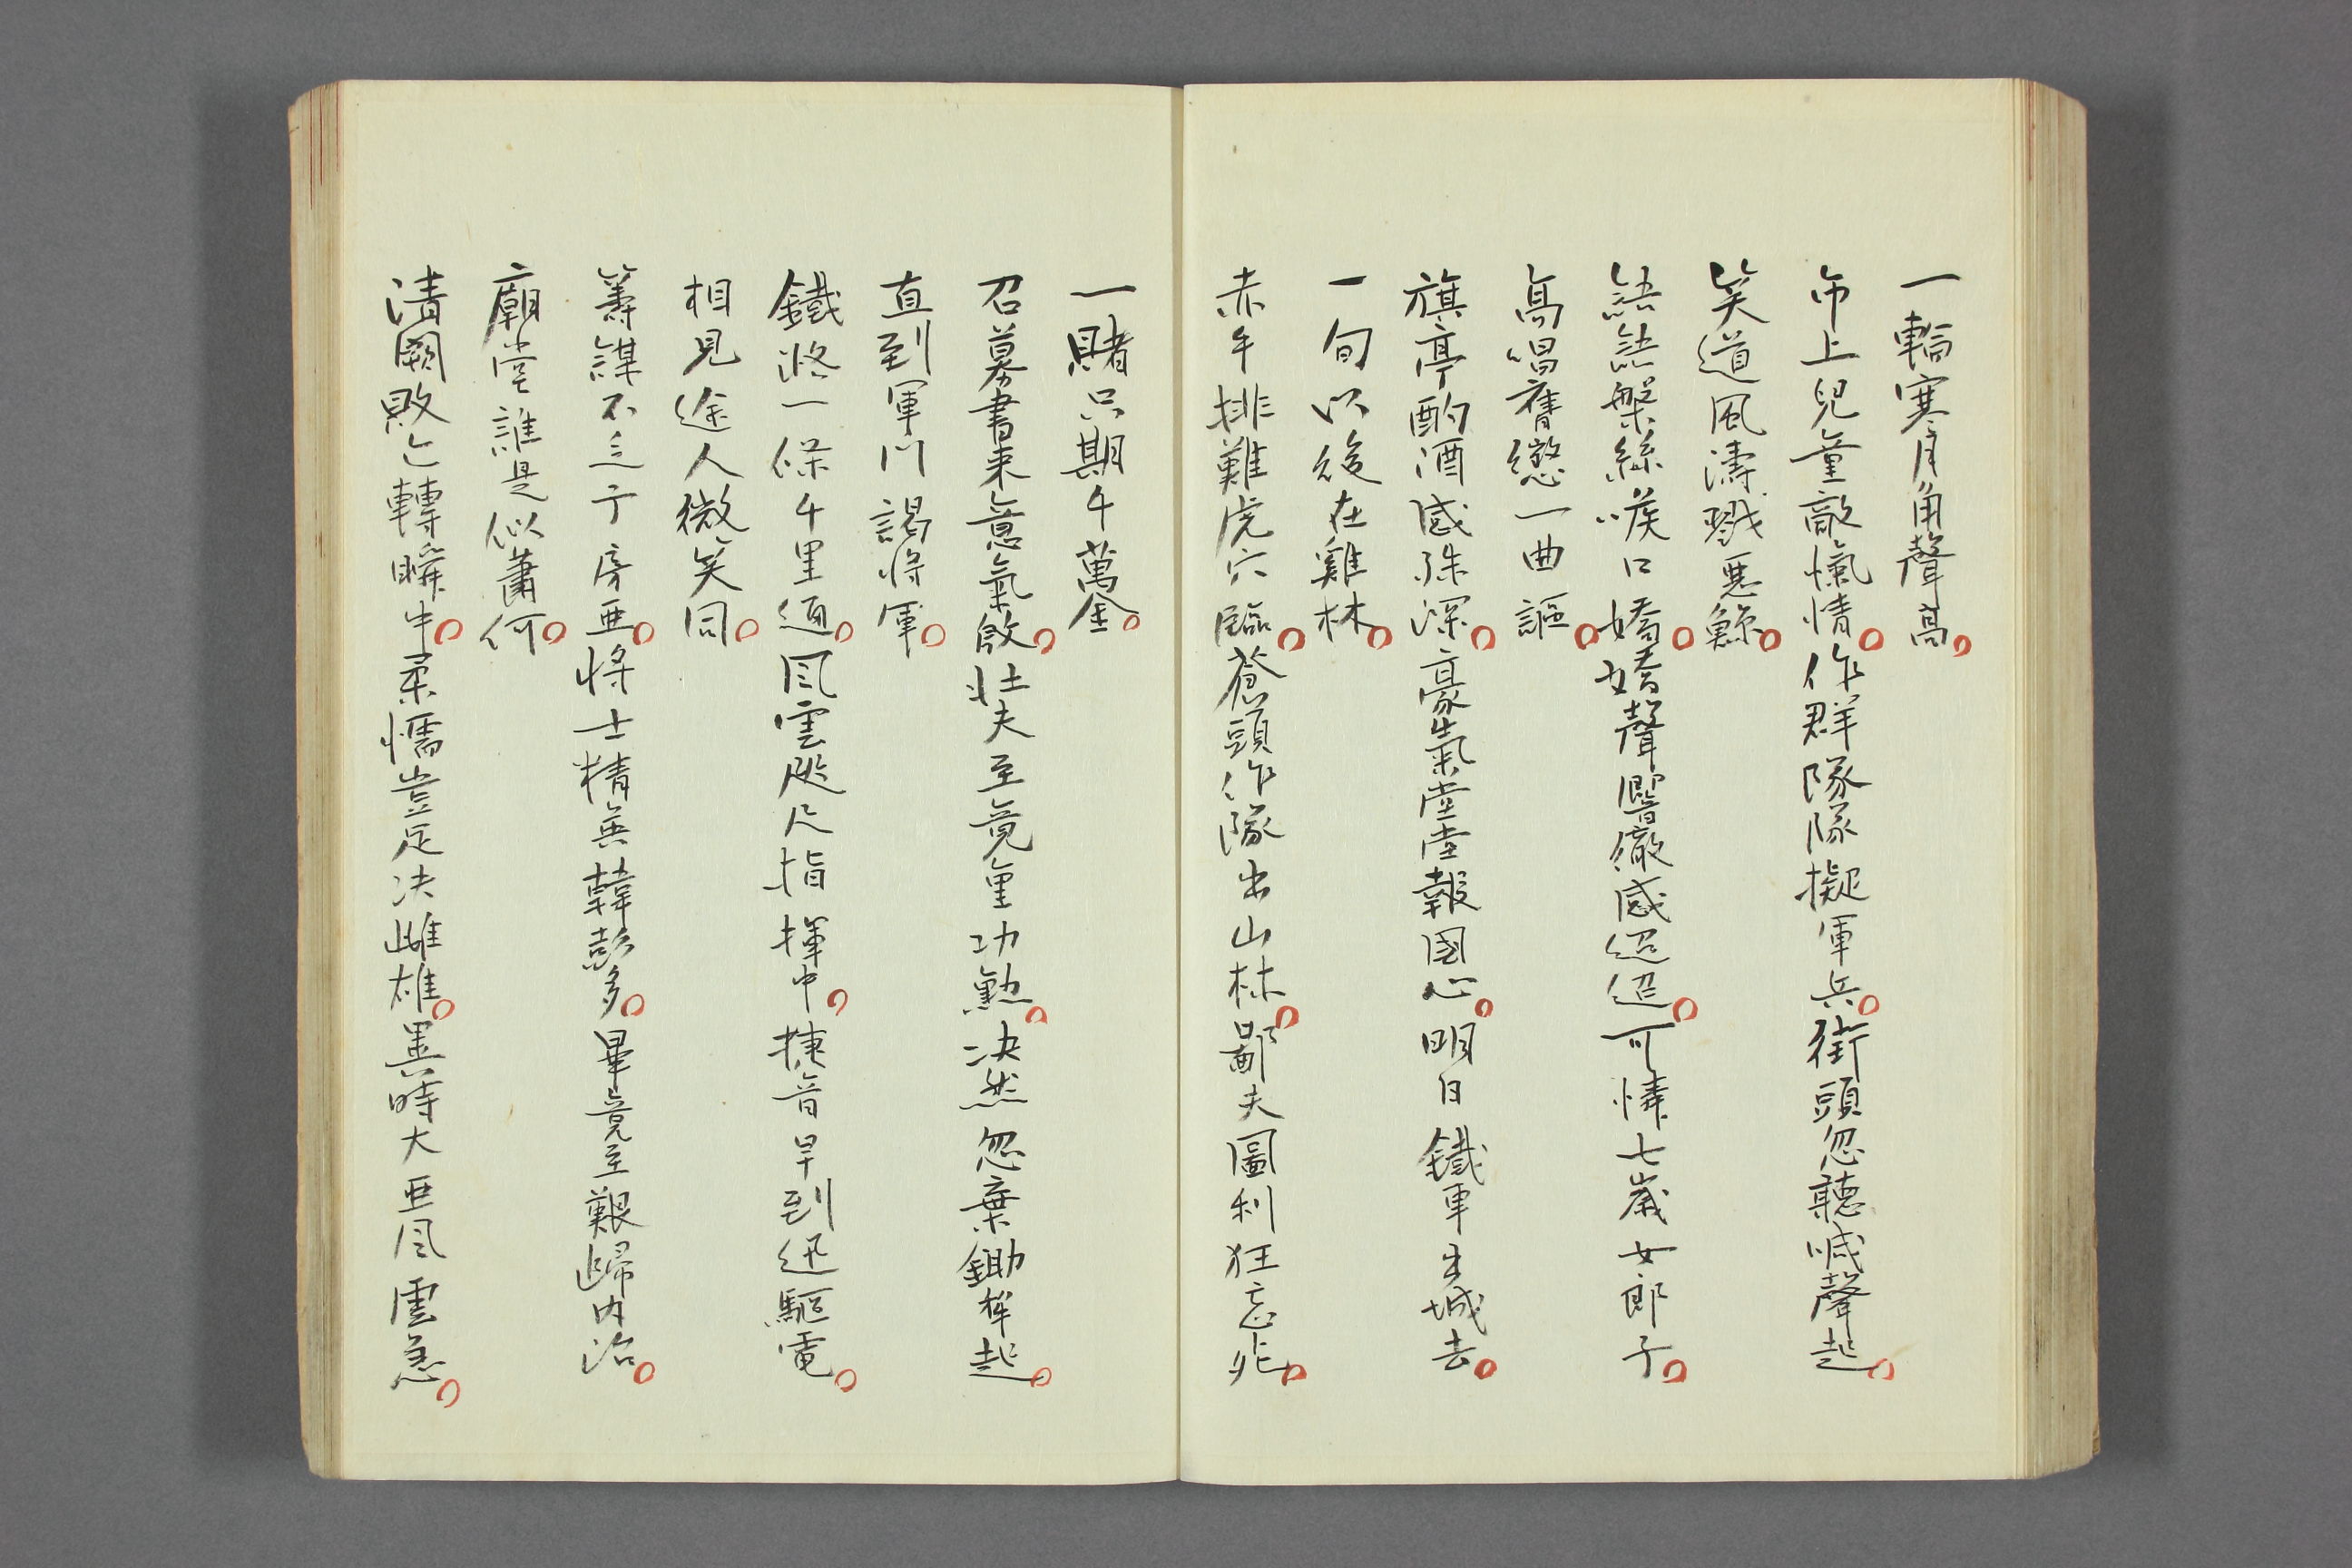 一輪寒月角聲高
市上兒童敵愾情作群隊隊擬軍兵街頭忽聽喊聲起
笑道風濤戮惡鯨
喉口嬌嬌聲響徹感迢迢可憐七歲女郎子
高唱舊戀一曲謳
旗亭酌酒感殊深豪氣堂堂報國心明日鐵軍出城去
一旬以後在雞林
赤手排難虎穴臨蒼頭作隊出山林鄙夫圖利狂忘死
一賭只期千萬金
召募書来意氣啟壮夫至竟重功勲决然忽棄鋤犂起
直到軍門謁将軍
鐵將一條千里通風雲咫尺指揮中捷音早到迅驅電
相見途人微笑同
籌謀不乏子房亜将士精兵韓彭多畢竟至艱歸内治
廟堂誰是似蕭何
清國敗亡轉瞬中柔懦豈足决雌雄異時大亜風雲急